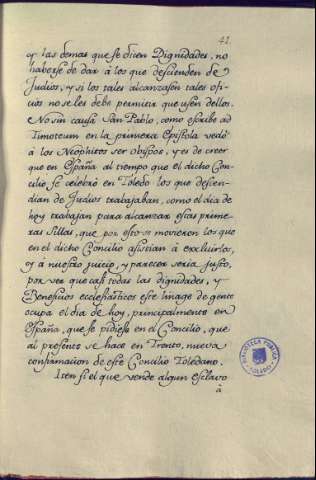 41.
y las demas que se dicen Dignidades, no
haberse de dar á los que descienden de
Judios, y si los tales alcanzasen tales ofi-
cios no se les debe permitir que usen dellos.
No sin causa San Pablo, como escribe ad
Timoteum en la primera Epistola vedó
á los Neophitos ser obispos, y es de creer
que en España al tiempo que el dicho Con-
cilio se celebró en Toledo los que descien-
dian de Judios trabajaban, como el dia de
hoy trabajan para alcanzar estas prime-
ras sillas, que por esto se movieron los que
en el dicho Concilio asistian á excluirlos,
y á nuestro juicio, y parecer seria justo,
por ver que casi todas las dignidades, y
Beneficios ecclesiásticos este linage de gente
ocupa el dia de hoy, principalmente en
España, que se pidiese en el Concilio, que
al presente se hace en Trento, nueva
confirmacion de este Concilio Toledano.
Iten si el que vende algun esclavo
á
BIBLIOTECA PUBLICA
TOLEDO